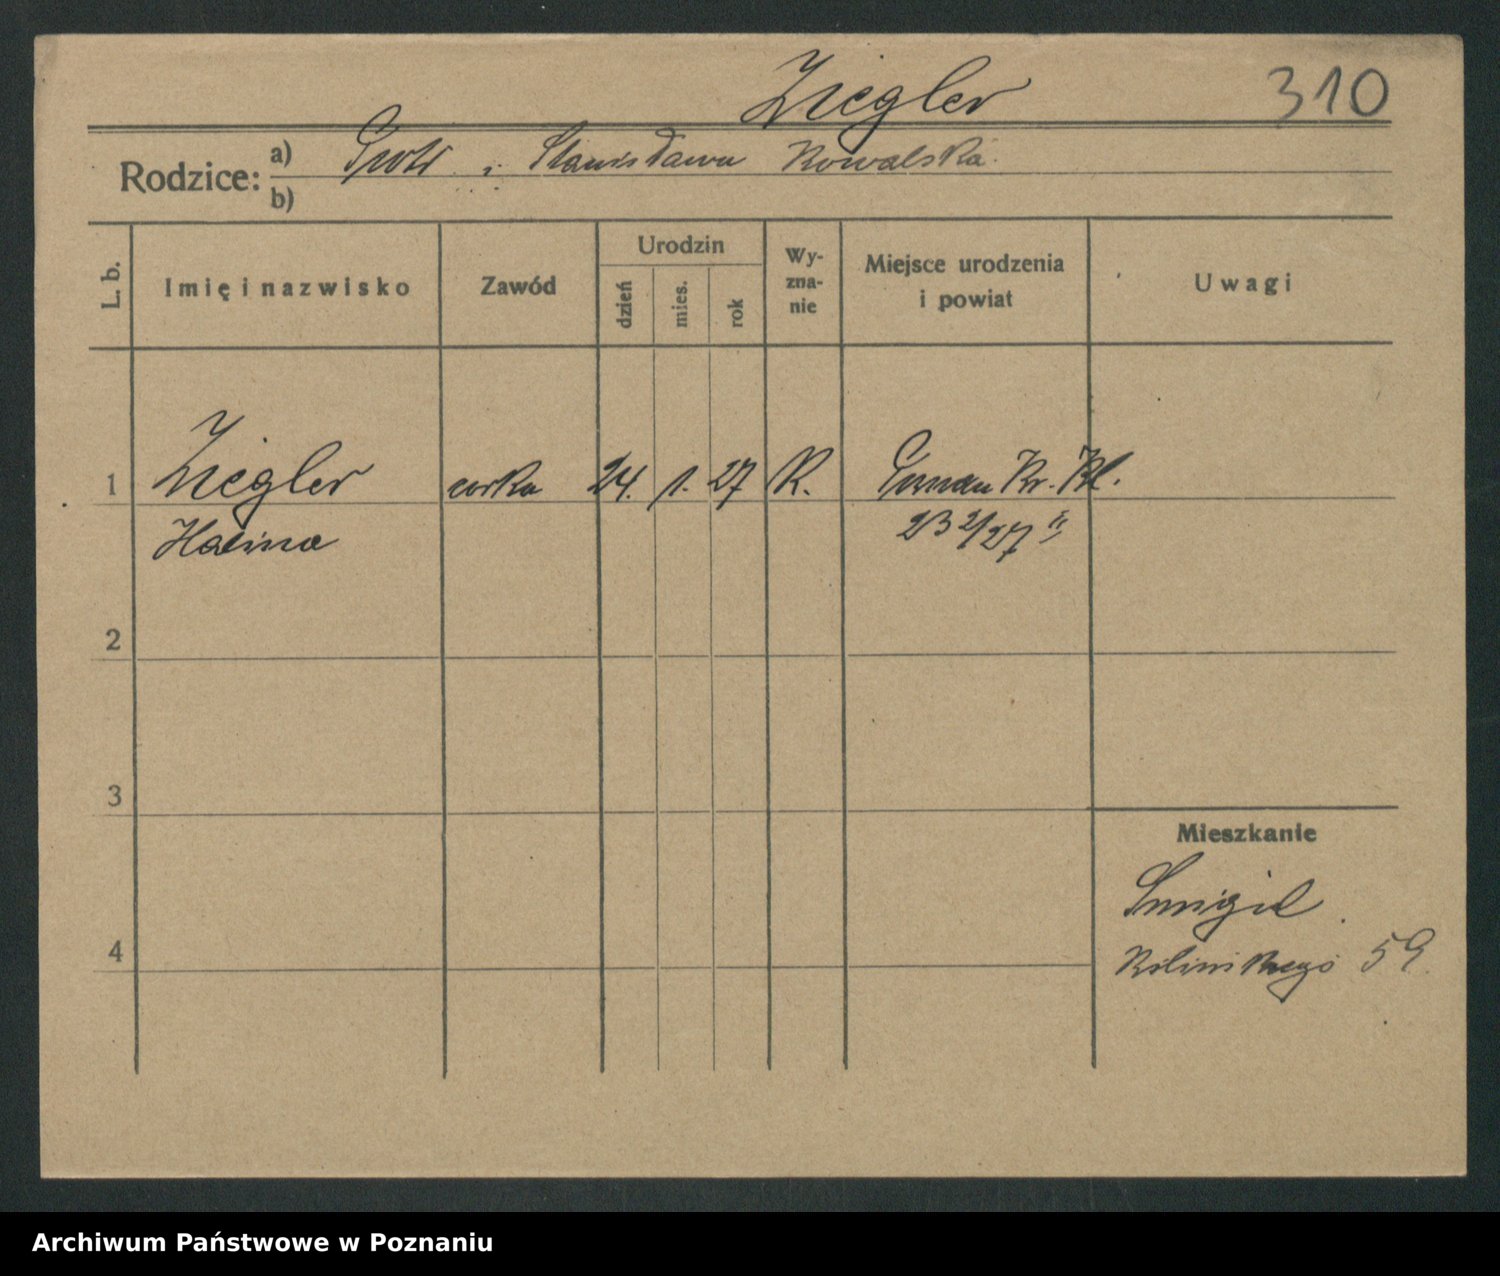 Ziegler 310
Rodzice: a) Piotr i Stanisława Kowalska
b)
L. b. Imię i nazwisko Zawód Urodzin dzień mies. rok Wy-zna-nie Miejsce urodzenia i powiat Uwagi
1 Ziegler córka 24. 1. 27 R.
Halina 23 2/27 II
2
3
Mieszkanie
Śmigiel
4
Kilińskiego 59
Archiwum Państwowe w Poznaniu